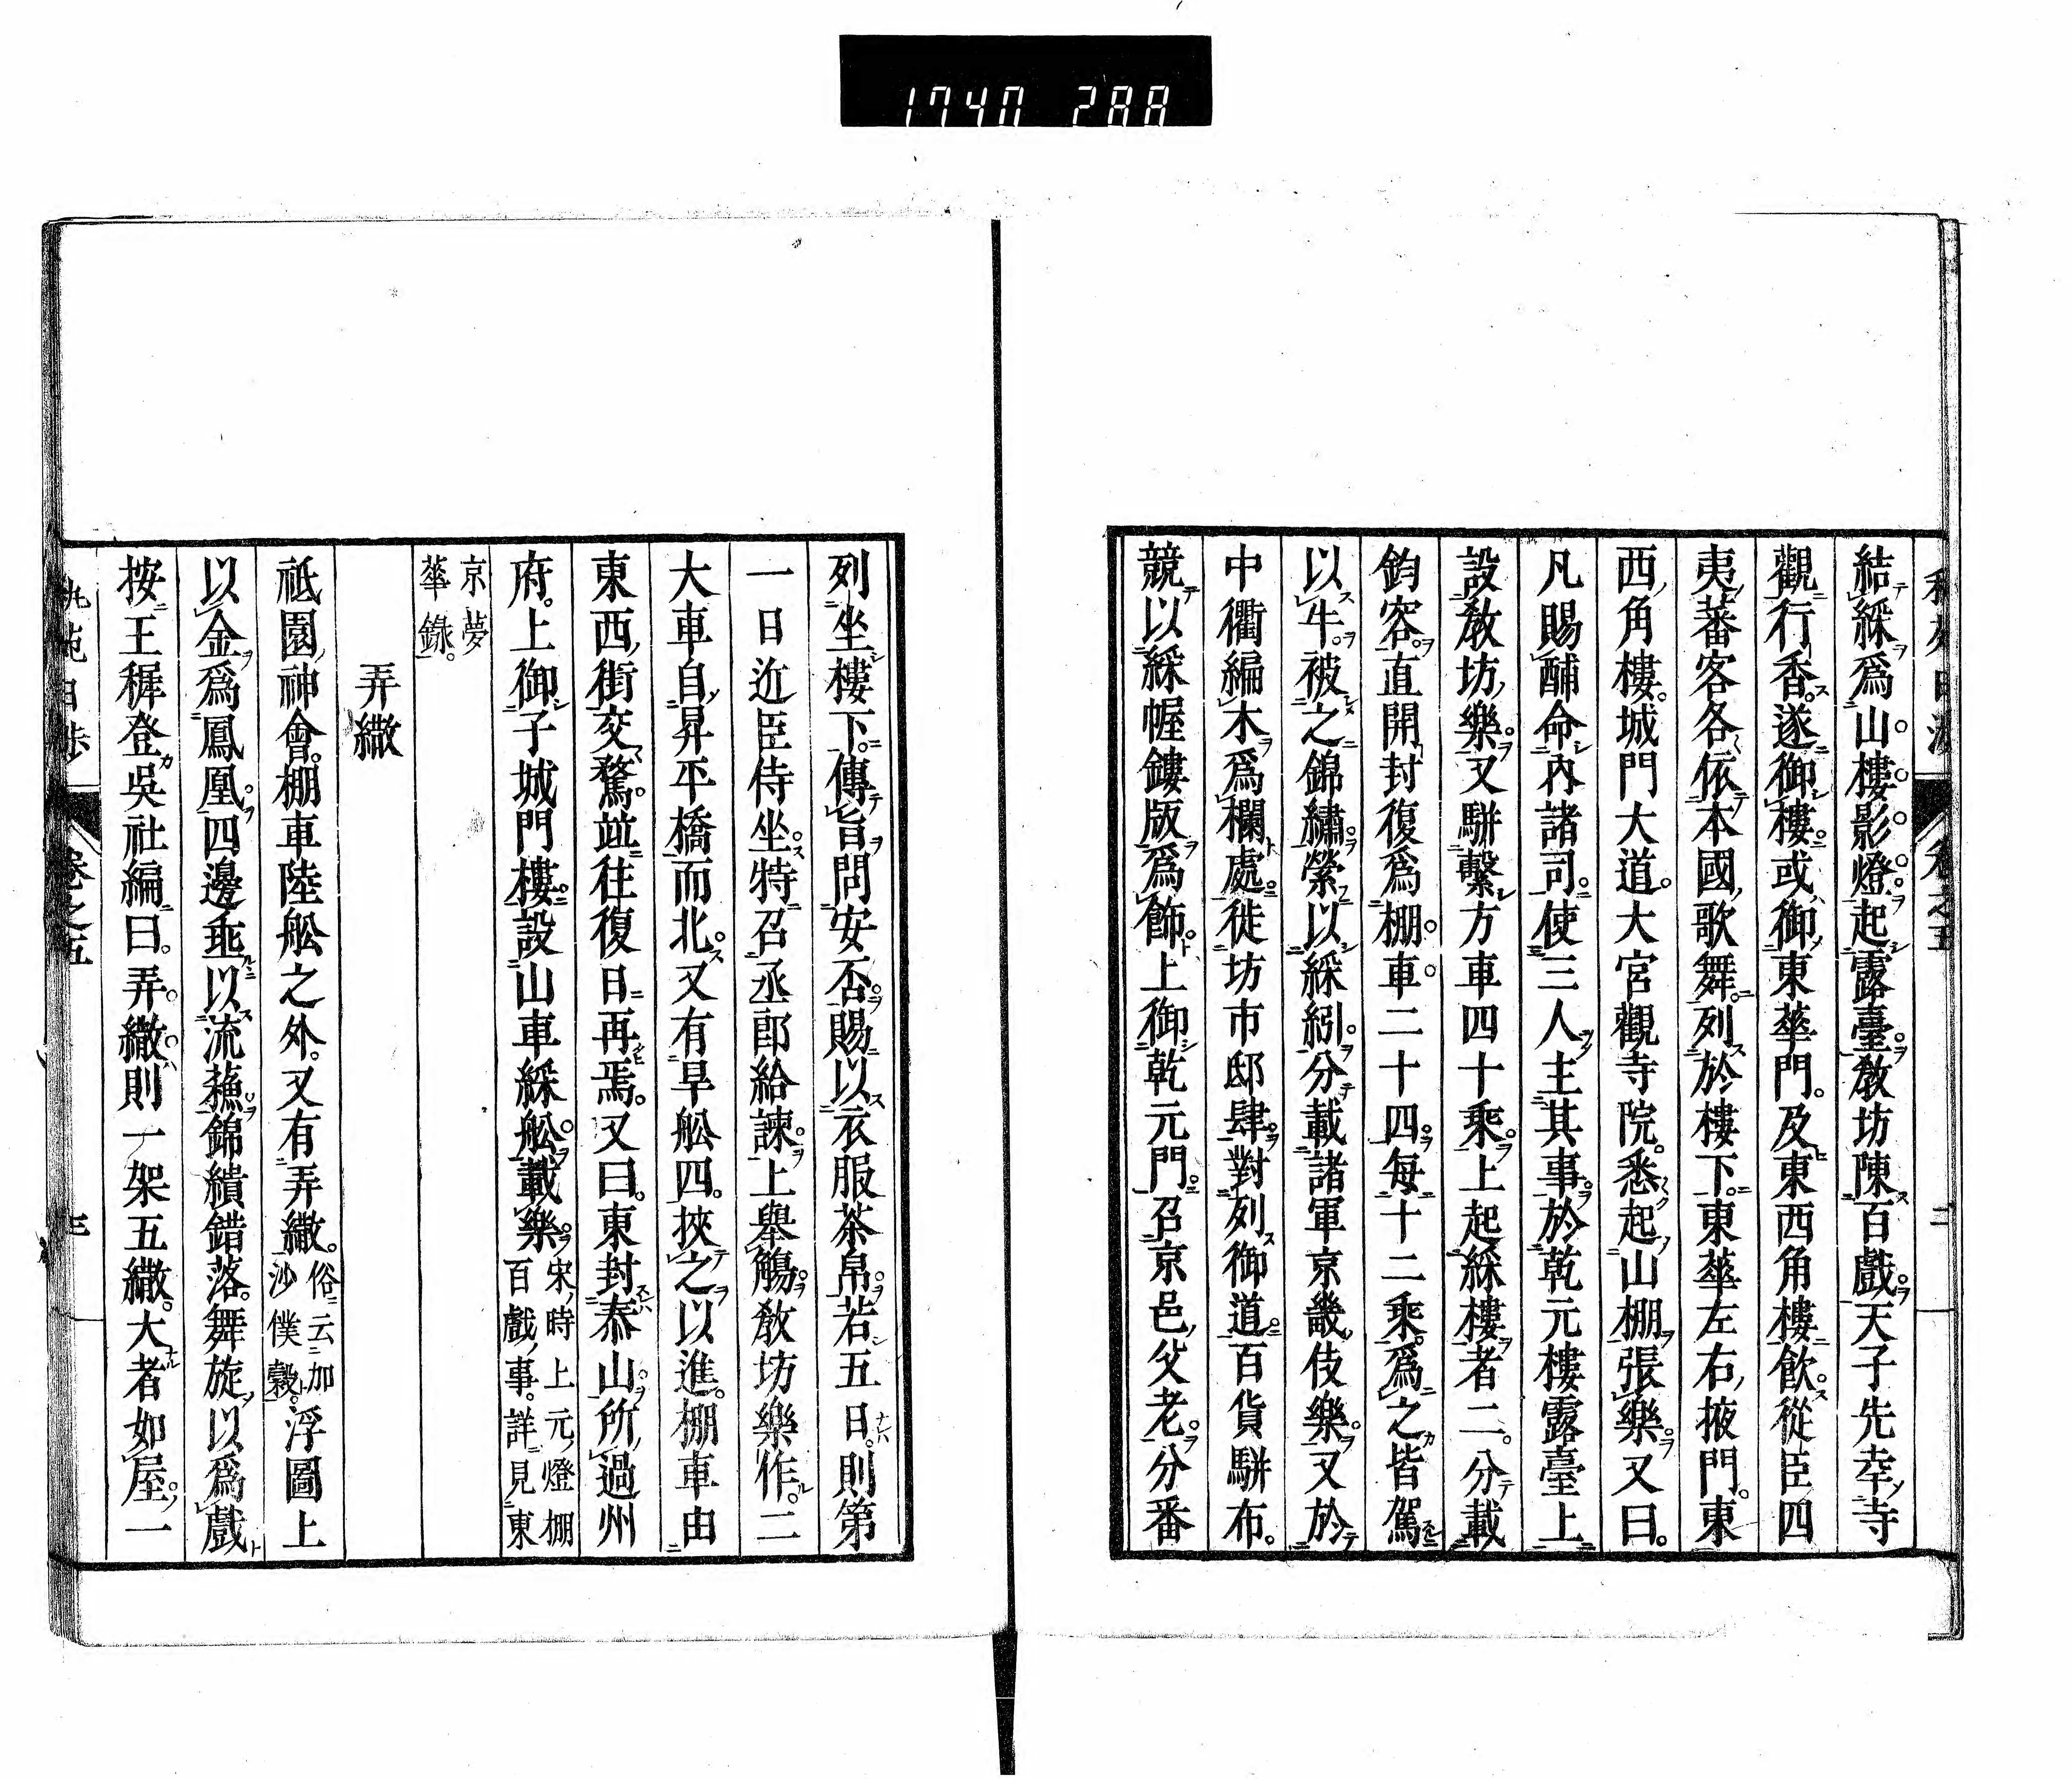 1740 288
結綵爲山樓影燈起露臺教坊陳百戲天子先幸寺
觀行香遂御樓或御東華門及東西角樓飮從臣四
夷蕃客各依本國歌舞列於樓下東華左右掖門東
西角樓城門大道大宮觀寺院悉起山棚張樂又曰
凡賜酺命內諸司使三人主其事於乾元樓露臺上
設教坊樂又駢繫方車四十乘上起綵樓者二分載
鈞容直開封復爲棚車二十四每十二乘爲之皆駕
以牛被之錦繡縈以綵紖分載諸軍京畿伎樂又於
中衢編木爲欄處徙坊市邸肆對列御道百貨駢布
競以綵幄鏤版爲飾上御乾元門召京邑父老分番
卷之五
二
列坐樓下傳旨問安否賜以衣服茶帛若五日則第
一日近臣侍坐特召丞郎給諫上舉觴教坊樂作二
大車自昇平橋而北又有旱舩四挾之以進棚車由
東西街交騖竝往復日再焉又曰東封泰山所過州
府上御子城門樓設山車綵舩載樂宋時上元燈棚百戲事詳見東
京夢華錄
弄繖
祇園神會棚車陸舩之外又有弄繖俗云加沙僕穀浮圖上
以金爲鳳凰四邊乖以流蘓錦繢錯落舞旋以爲戲
按王穉登吳社編曰弄繖則一架五繖大者如屋一
卷之五
三